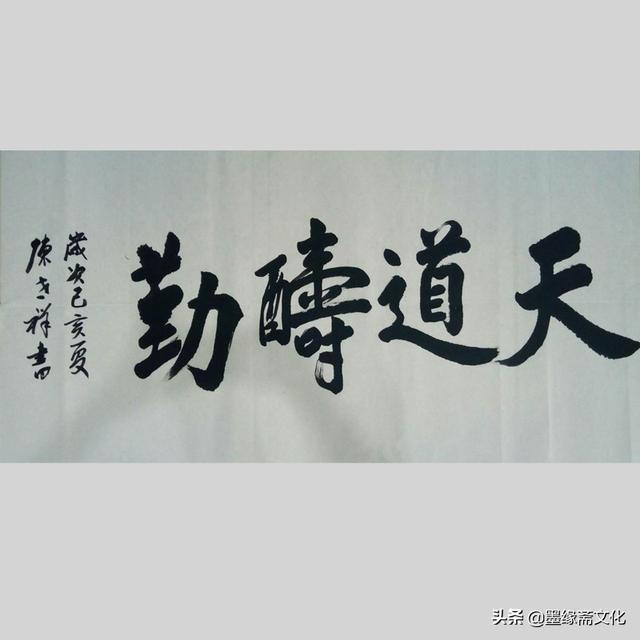 天道醻勤
歲次己亥夏
陳祥書
头条 @墨缘斋文化